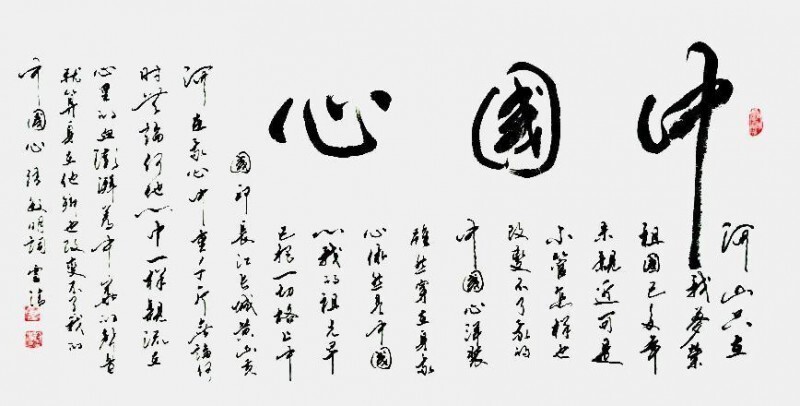 中國心
河山只在
我夢縈
祖国已多年
未親近可是
不管怎样也
改變不了我的
中國心洋裝
雖然穿在身我
心依然是中國
心我的祖先早
已把一切烙上中
國印長江長城黄山黄
河在我心中重千斤無論何
时無論何地心中一樣親流在
心里的血澎湃着中華的聲音
就算身在他鄉也改變不了我的
中國心 張敏明詞